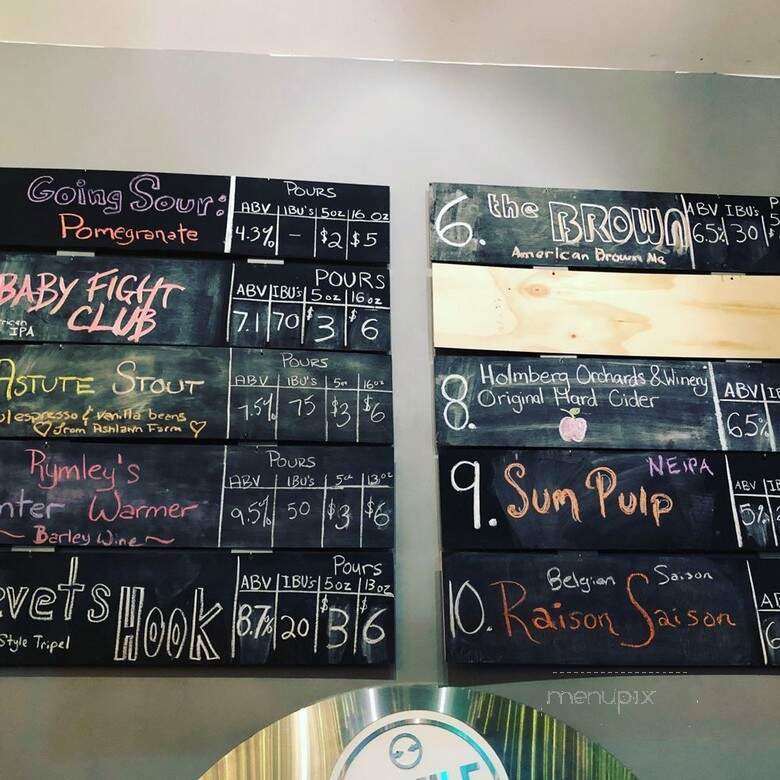 Going Sour:
Pomegranate
POURS
ABV IBU's 5oz 16 oz
4.3% - $2 $5
BABY FIGHT
CLUB
IPA
POURS
ABV IBU's 5 oz 16 oz
7.1 70 $3 $6
ASTUTE STOUT
espresso & vanilla beans
from Ashlawn Farm
POURS
ABV IBU's 5oz 16oz
7.5% 75 $3 $6
Rymley's
nter Warmer
~ Barley Wine ~
POURS
ABV IBU's 5oz 13oz
9.5% 50 $3 $6
vets HOOK
Style Tripel
Pours
ABV IBU's 5oz 13oz
8.7% 20 $3 $6
6. the BROWN
American Brown Ale
ABV IBU's
6.5% 30
8. Holmberg Orchards & Winery
Original Hard Cider
ABV
6.5%
9. Sum Pulp
NEIPA
ABV
5%
10. Raison Saison
Belgian Saison
menupix